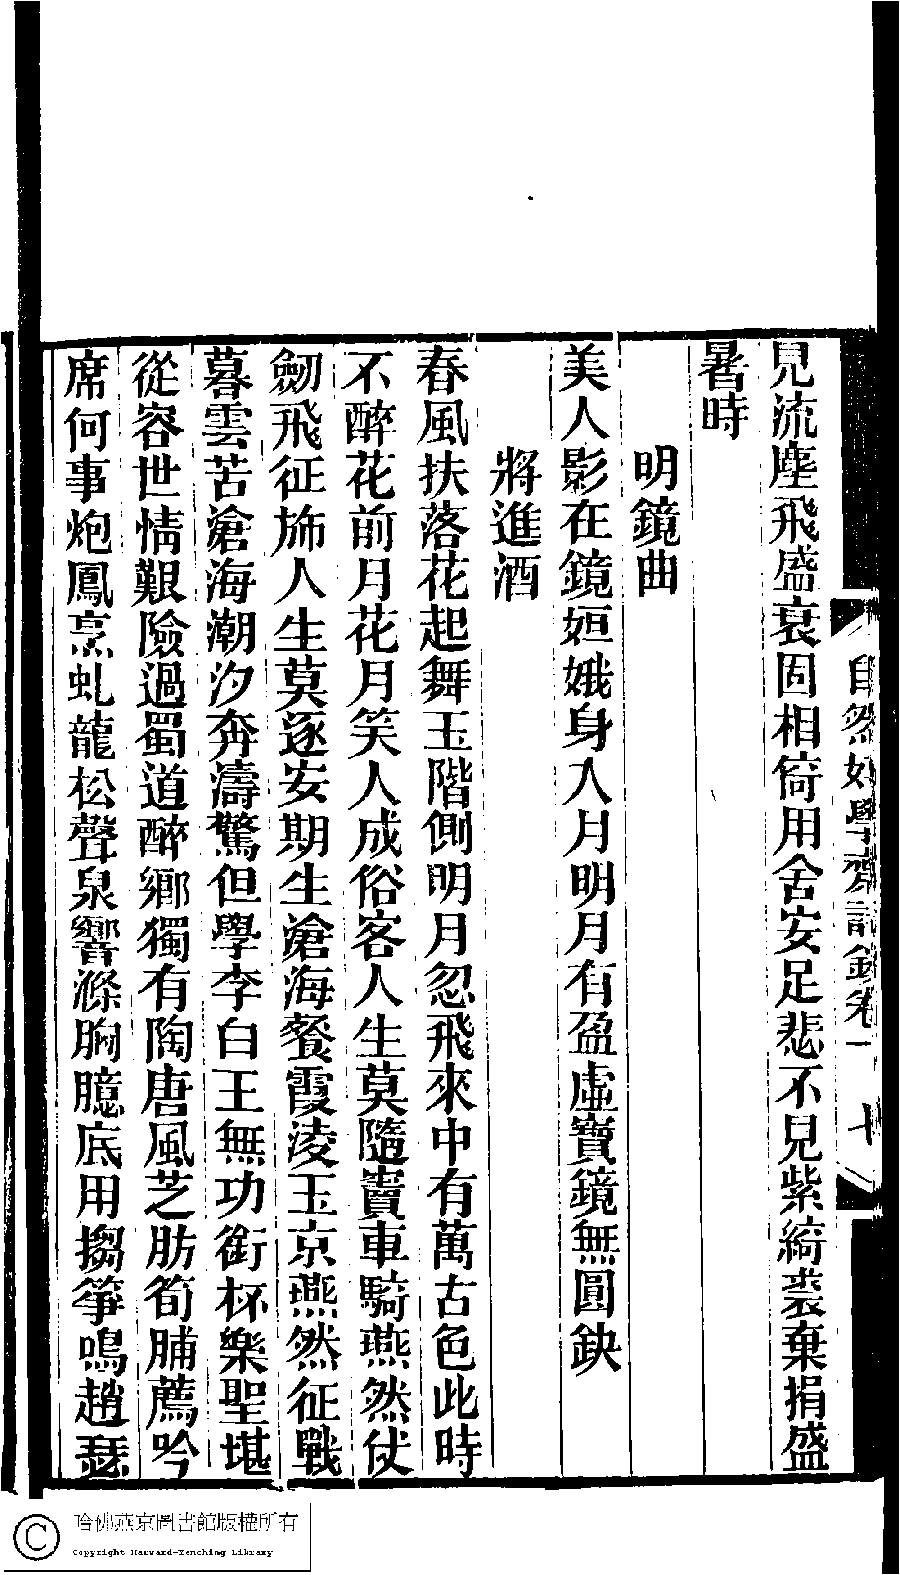 見流塵飛盛衰固相倚用舍安足悲不見紫綺裘棄捐盛
暑時
明鏡曲
美人影在鏡姮娥身入月明月有盈虛寶鏡無圓缺
將進酒
春風扶落花起舞玉階側明月忽飛來中有萬古色此時
不醉花前月花月笑人成俗客人生莫隨竇車騎燕然仗
劒飛征斾人生莫逐安期生滄海餐霞淩玉京燕然征戰
暮雲苦滄海潮汐奔濤驚但學李白王無功銜杯樂聖堪
從容世情艱險過蜀道醉鄉獨有陶唐風芝肪筍脯薦吟
席何事炮鳳烹虬龍松聲泉響滌胸臆底用搊箏鳴趙瑟
自然好學齋詩鈔卷一
十
哈佛燕京圖書館版權所有
Copyright Harvard-Yenching Library